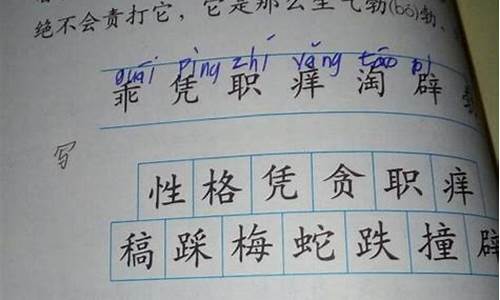 绝不会责打它，它是那么生气勃(bó)勃、
guāi píng zhí yǎng táo pì
乖 凭 职 痒 淘 辟
写
性 格 凭 贪 职 痒
稿 踩 梅 蛇 跌 撞 辟